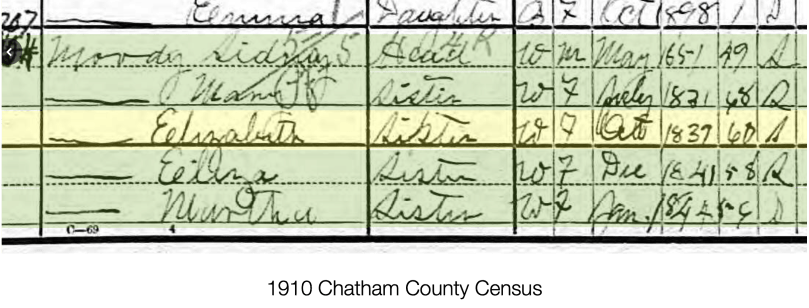 207 —— Emma Daughter B F Oct 1898 1 S
Moody Sidney S Head W M May 1851 49 S
—— Mary Sister W F July 1831 68 S
—— Elizabeth Sister W F Oct 1839 60 S
—— Eliza Sister W F Dec 1841 58 S
—— Martha Sister W F Jan. 184 56 S
C—69 4
1910 Chatham County Census